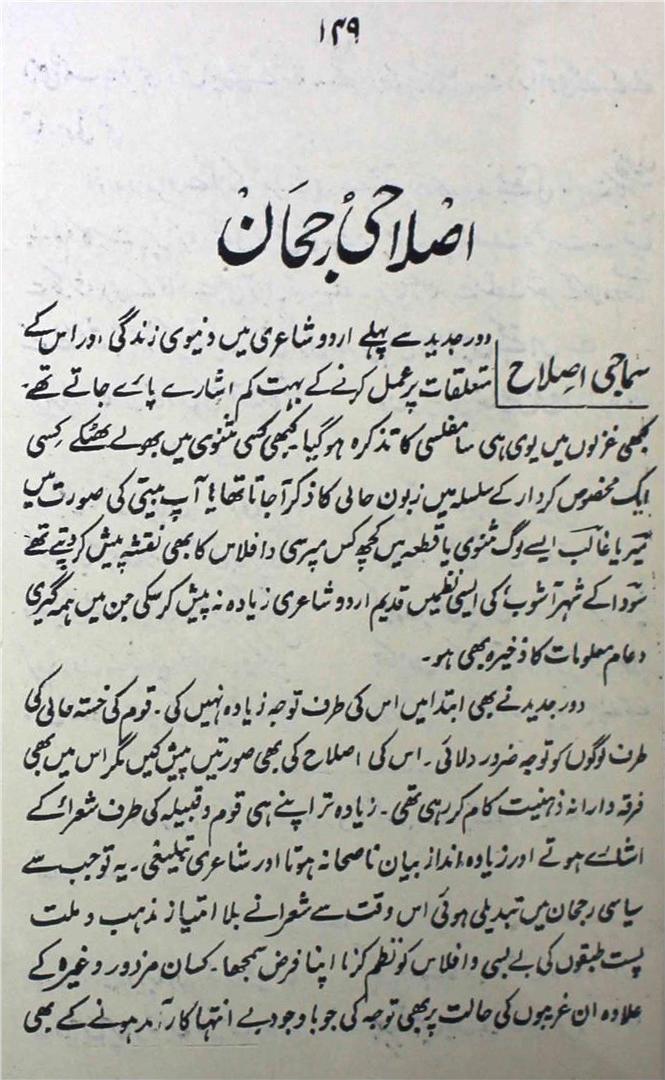 ۱۴۹
اصلاحی رجحان
سماجی اصلاح
دور جدید سے پہلے اردو شاعری میں دنیوی زندگی اور اس کے
متعلقات پر عمل کرنے کے بہت کم اشارے پائے جاتے تھے۔
کبھی غزلوں میں یوں ہی سا مفلسی کا تذکرہ ہو گیا کبھی کسی مثنوی میں بھولے بھٹکے کسی
ایک مخصوص کردار کے سلسلہ میں زبون حالی کا ذکر آ جاتا تھا یا آپ بیتی کی صورت میں
میر یا غالب ایسے لوگ مثنوی یا قطعہ میں کچھ کس مپرسی و افلاس کا بھی نقشہ پیش کر دیتے تھے
سودا کے شہر آشوب کی ایسی نظمیں قدیم اردو شاعری زیادہ نہ پیش کر سکی جن میں ہمہ گیری
و عام معلومات کا ذخیرہ بھی ہو۔
دور جدید نے بھی ابتدا میں اس کی طرف توجہ زیادہ نہیں کی۔ قوم کی خستہ حالی کی
طرف لوگوں کو توجہ ضرور دلائی۔ اس کی اصلاح کی بھی صورتیں پیش کیں مگر اس میں بھی
فرقہ دارانہ ذہنیت کام کر رہی تھی۔ زیادہ تر اپنے ہی قوم و قبیلہ کی طرف شعرائے کے
اشارے ہوتے اور زیادہ انداز بیان ناصحانہ ہوتا اور شاعری تبلیغی۔ یہ تو جب سے
سیاسی رجحان میں تبدیلی ہوئی اس وقت سے شعرا نے بلا امتیاز مذہب و ملت
پست طبقوں کی بے بسی و افلاس کو نظم کرنا اپنا فرض سمجھا۔ کسان مزدور وغیرہ کے
علاوہ ان غریبوں کی حالت پر بھی توجہ کی جو باوجود بے انتہا کارآمد ہونے کے بھی